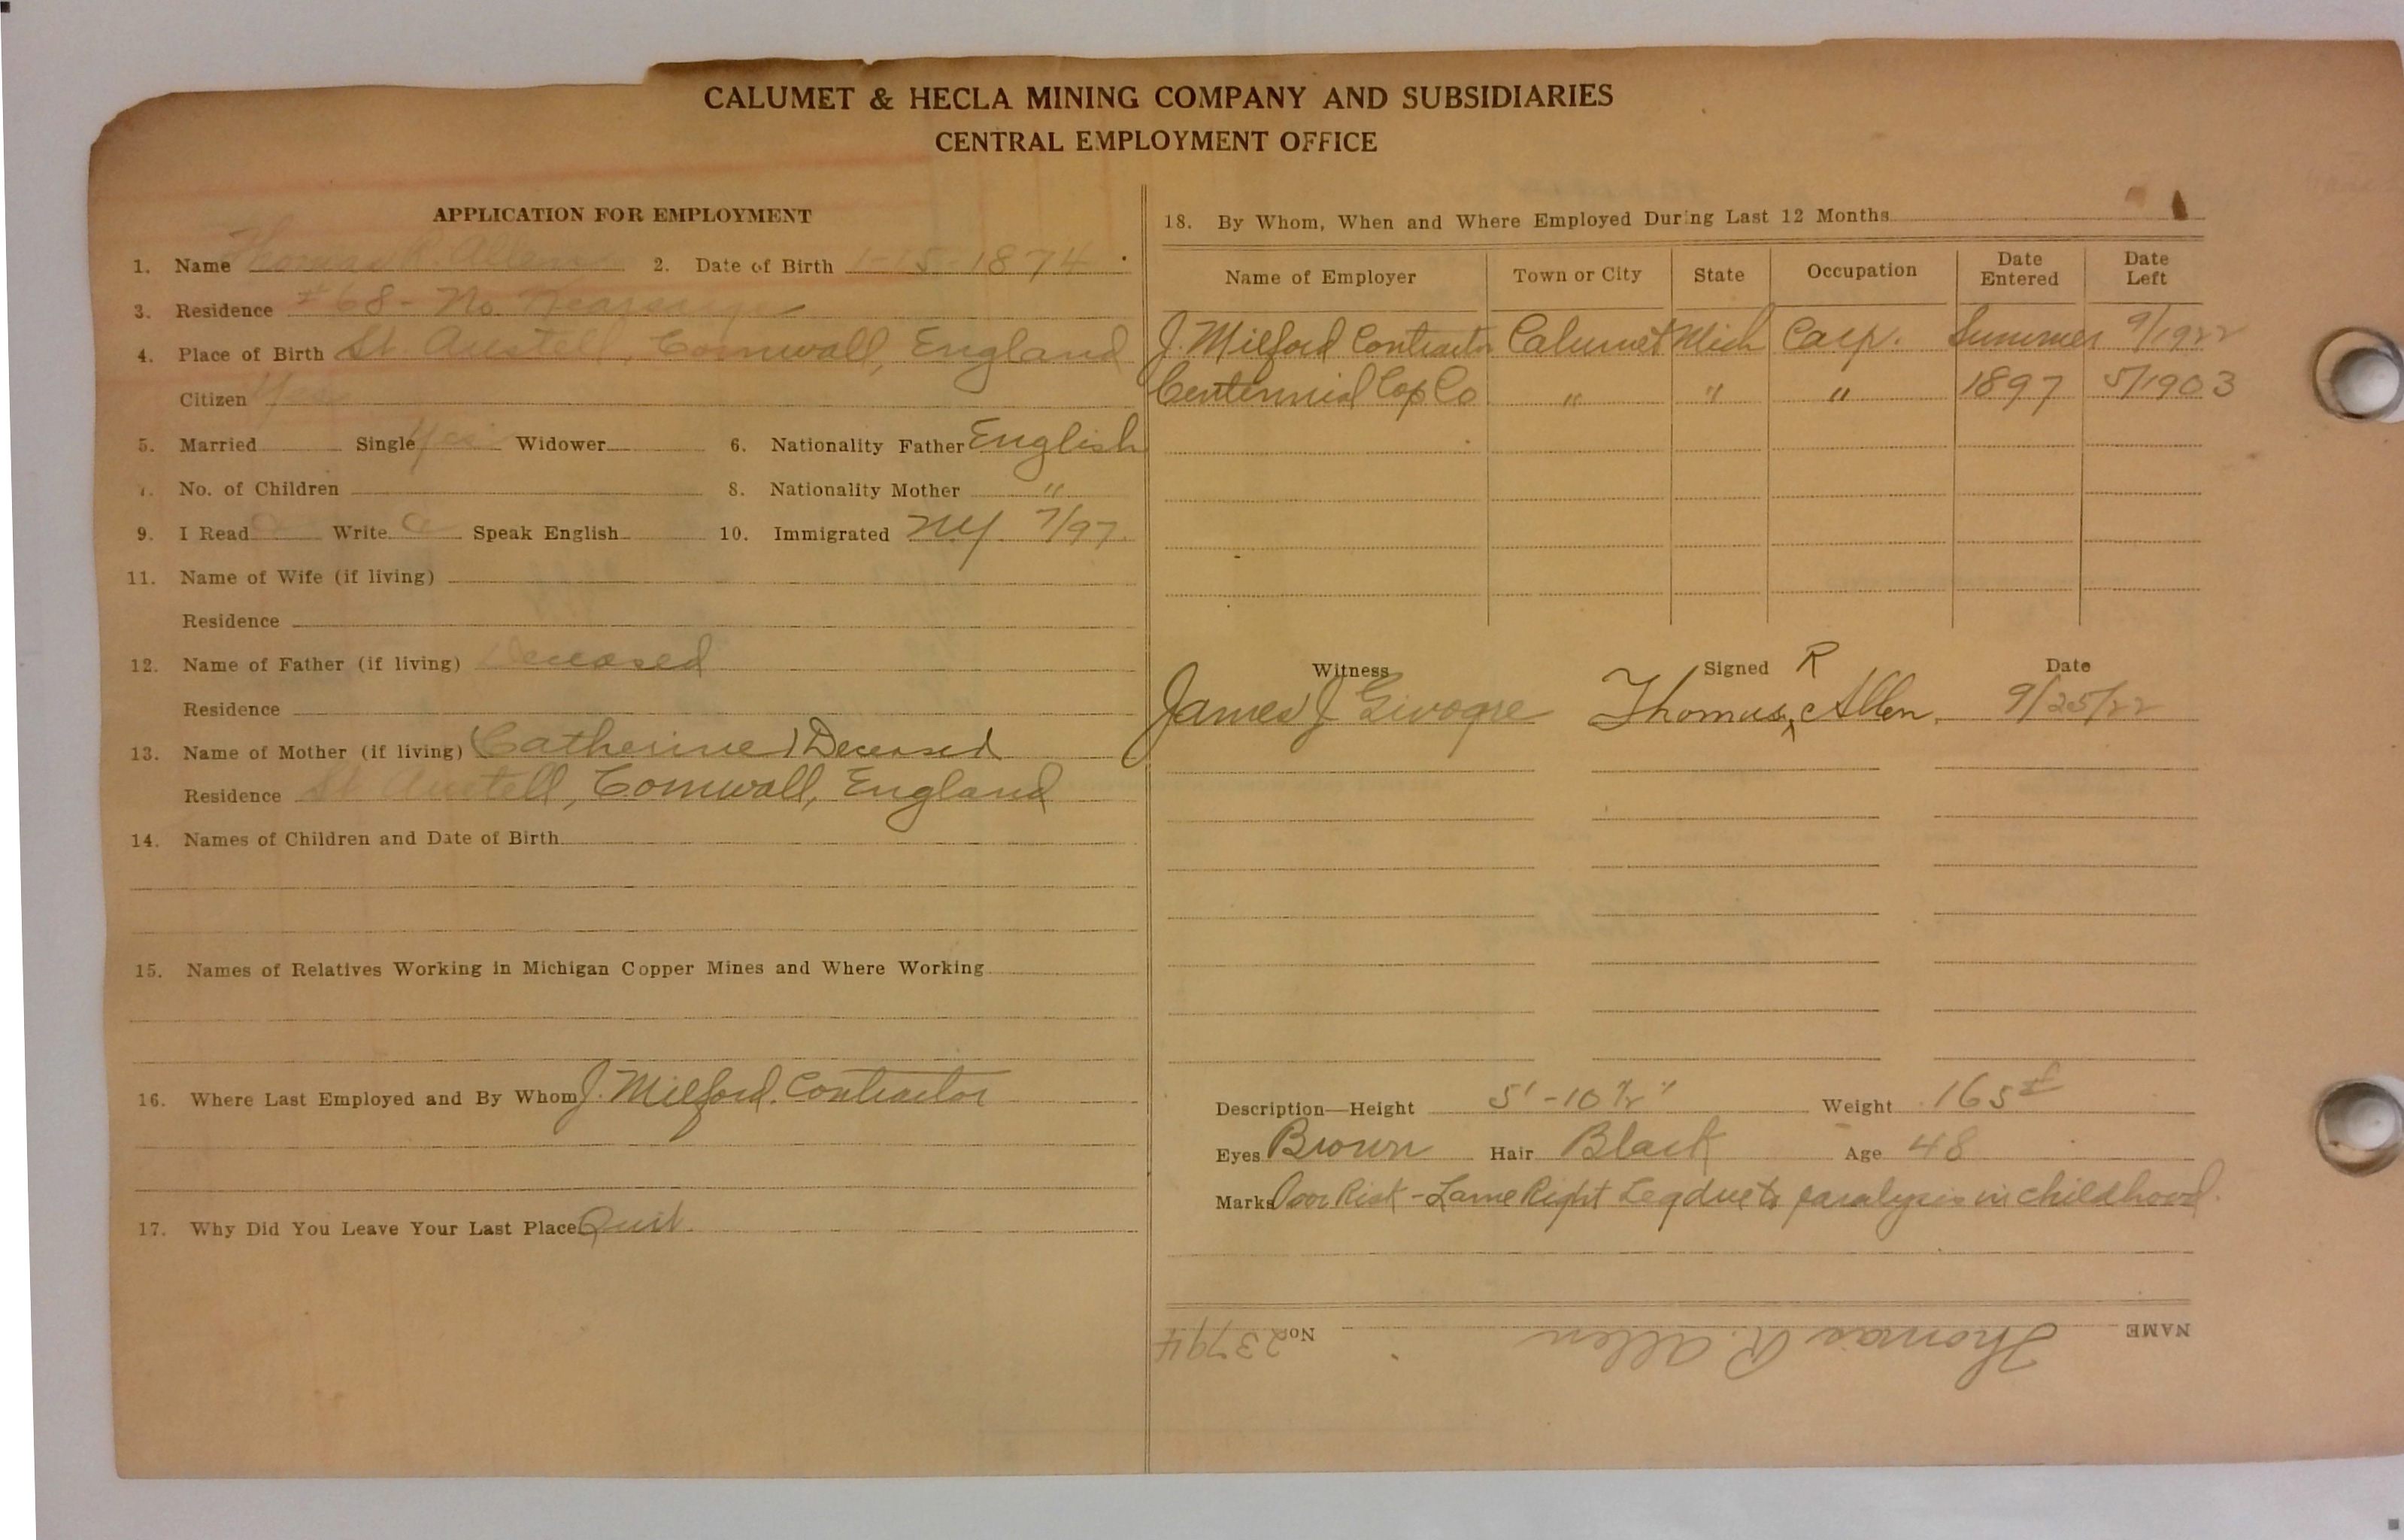 CALUMET & HECLA MINING COMPANY AND SUBSIDIARIES
CENTRAL EMPLOYMENT OFFICE
APPLICATION FOR EMPLOYMENT
1. Name Thomas R. Allen 2. Date of Birth 1-15-1874
3. Residence #68 - No. Kearsarge
4. Place of Birth St. Austell, Cornwall, England
Citizen Yes
5. Married Single Yes Widower 6. Nationality Father English
7. No. of Children 8. Nationality Mother "
9. I Read Write Speak English 10. Immigrated NY 7/97
11. Name of Wife (if living)
Residence
12. Name of Father (if living) Deceased
Residence
13. Name of Mother (if living) (Catherine) Deceased
Residence St Austell, Cornwall, England
14. Names of Children and Date of Birth
15. Names of Relatives Working in Michigan Copper Mines and Where Working
16. Where Last Employed and By Whom J. Milford. Contractor
17. Why Did You Leave Your Last Place Quit
18. By Whom, When and Where Employed During Last 12 Months
Name of Employer Town or City State Occupation Date Entered Date Left
J. Milford Contractor Calumet Mich Carp. Summer 9/1922
Centennial Cop Co " " " 1897 5/1903
Witness Signed Date
James J Thomas R Allen. 9/25/22
Description—Height 5'-10 1/2" Weight 165#
Eyes Brown Hair Black Age 48
Marks Poor Risk - Lame Right Leg due to paralysis in childhood.
NAME Thomas R. Allen No. 23794